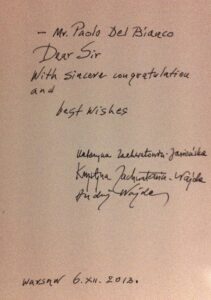 – Mr. Paolo Del Bianco
Dear Sir
With sincere congratulation
and
best wishes
Katarzyna Zachwatowicz-Jasieńska
Krystyna Zachwatowicz-Wajda
Andrzej Wajda
Warsaw 6.XII.2013.